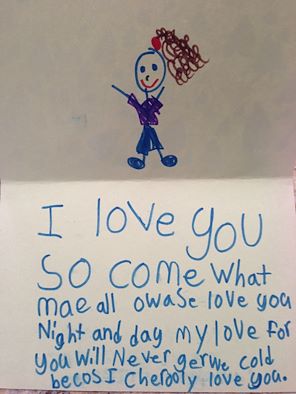 I love you
So come what
mae all owase love you
Night and day my love for
you will Never gerwe cold
becos I Cherdoly love you.